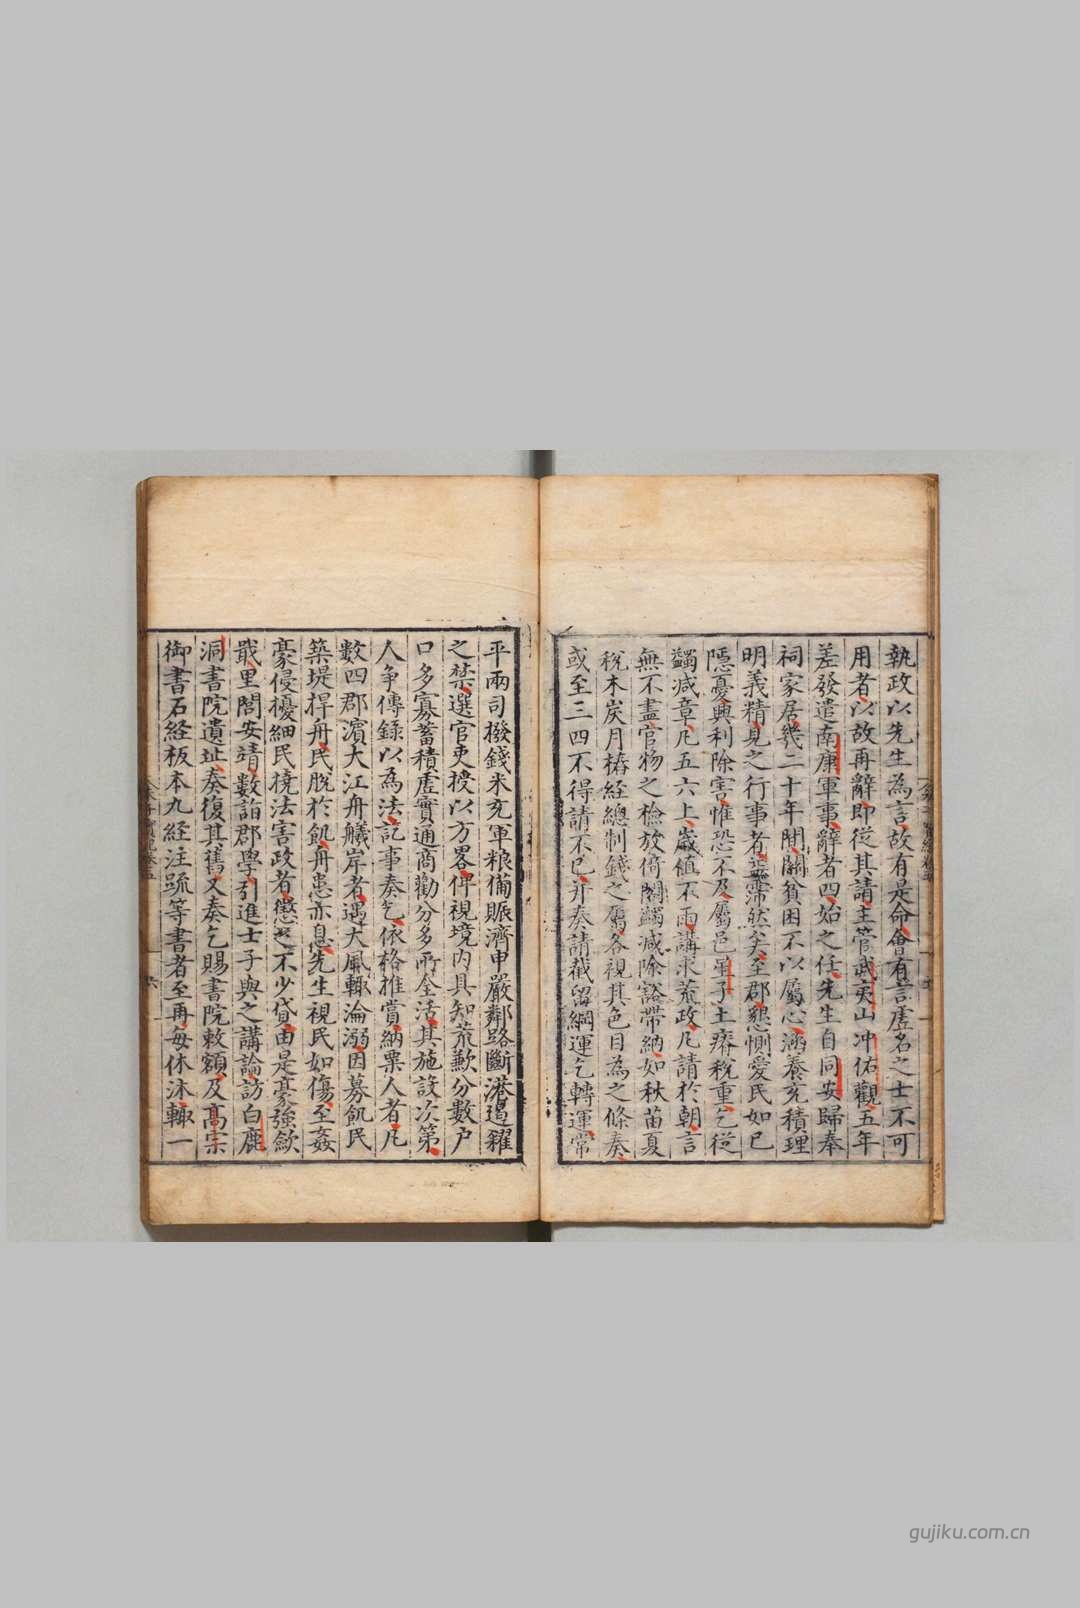 執政以先生為言故有是命會有言虛名之士不可
用者以故再辭即從其請主管武夷山冲佑觀五年
差發遣南康軍事辭者四始之任先生自同安歸奉
祠家居幾二十年間關貧困不以屬心涵養充積理
明義精見之行事者益霈然矣至郡懇惻愛民如己
隱憂興利除害惟恐不及屬邑星子土瘠稅重乞從
蠲減章凡五六上歲值不雨講求荒政凡請於朝言
無不盡官物之檢放倚閣蠲減除豁帶納如秋苗夏
稅木炭月樁経總制錢之屬各視其色目為之條奏
或至三四不得請不已并奏請截留綱運乞轉運常
平兩司撥錢米充軍粮備賑濟申嚴鄰路斷港遏糴
之禁選官吏授以方畧俾視境內具知荒歉分數戶
口多寡蓄積虛實通商勸分多所全活其施設次第
人爭傳錄以為法記事奏乞依格推賞納粟人者凡
數四郡濱大江舟艤岸者遇大風輙淪溺因募飢民
築堤捍舟民脫於飢舟患亦息先生視民如傷至姦
豪侵擾細民撓法害政者懲之不少貸由是豪強斂
戢里閭安靖數詣郡學引進士子與之講論訪白鹿
洞書院遺址奏復其舊又奏乞賜書院敕額及高宗
御書石経板本九経注疏等書者至再每休沐輙一
六
gujiku.com.cn